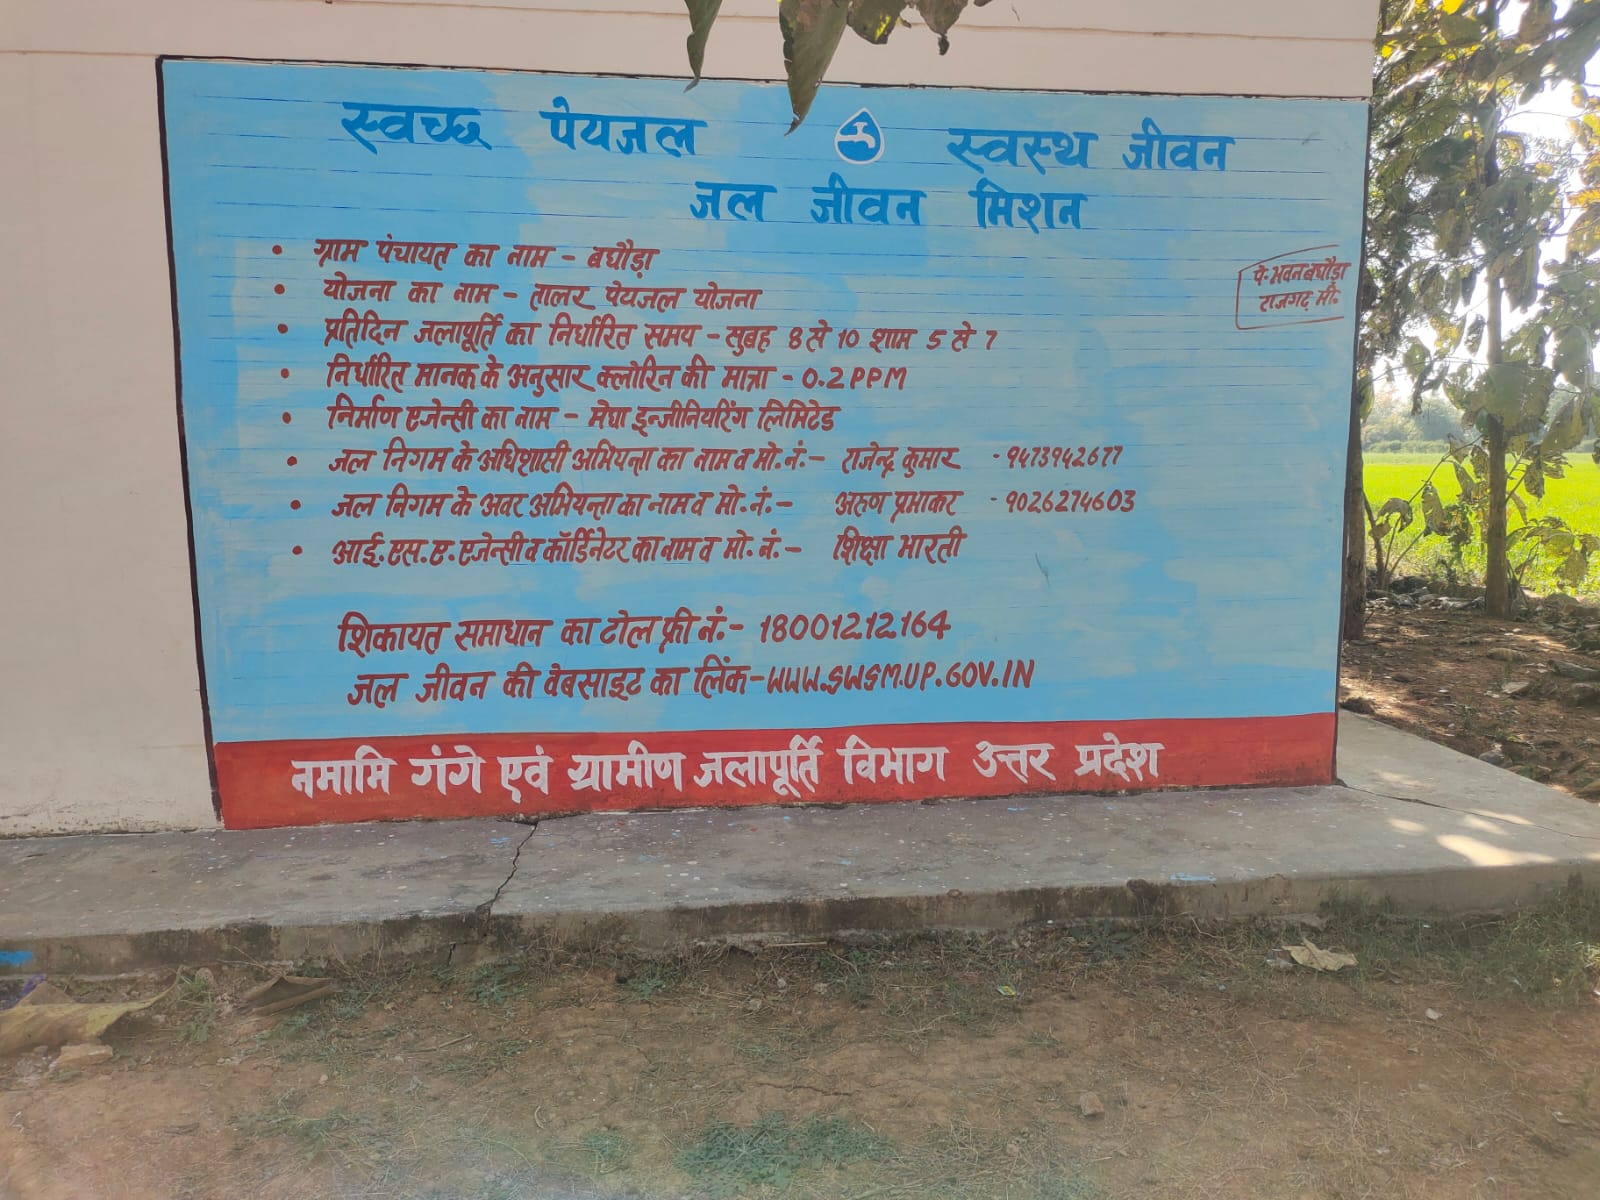 स्वच्छ पेयजल स्वस्थ जीवन
जल जीवन मिशन
• ग्राम पंचायत का नाम - बघौड़ा
• योजना का नाम - तालर पेयजल योजना
• प्रतिदिन जलापूर्ति का निर्धारित समय - सुबह 8 से 10 शाम 5 से 7
• निर्धारित मानक के अनुसार क्लोरिन की मात्रा - 0.2 PPM
• निर्माण एजेन्सी का नाम - मेघा इन्जीनियरिंग लिमिटेड
• जल निगम के अधिशासी अभियन्ता का नाम व मो. नं. - राजेन्द्र कुमार - 9473942677
• जल निगम के अवर अभियन्ता का नाम व मो. नं. - अरुण प्रभाकर - 9026274603
• आई. एस. ए. एजेन्सी व कॉर्डिनेटर का नाम व मो. नं. - शिक्षा भारती
शिकायत समाधान का टोल फ्री नं. - 18001212164
जल जीवन की वेबसाइट का लिंक - WWW.SWSM.UP.GOV.IN
नमामि गंगे एवं ग्रामीण जलापूर्ति विभाग उत्तर प्रदेश
पे. भवन बघौड़ा
राजगढ़ मी.